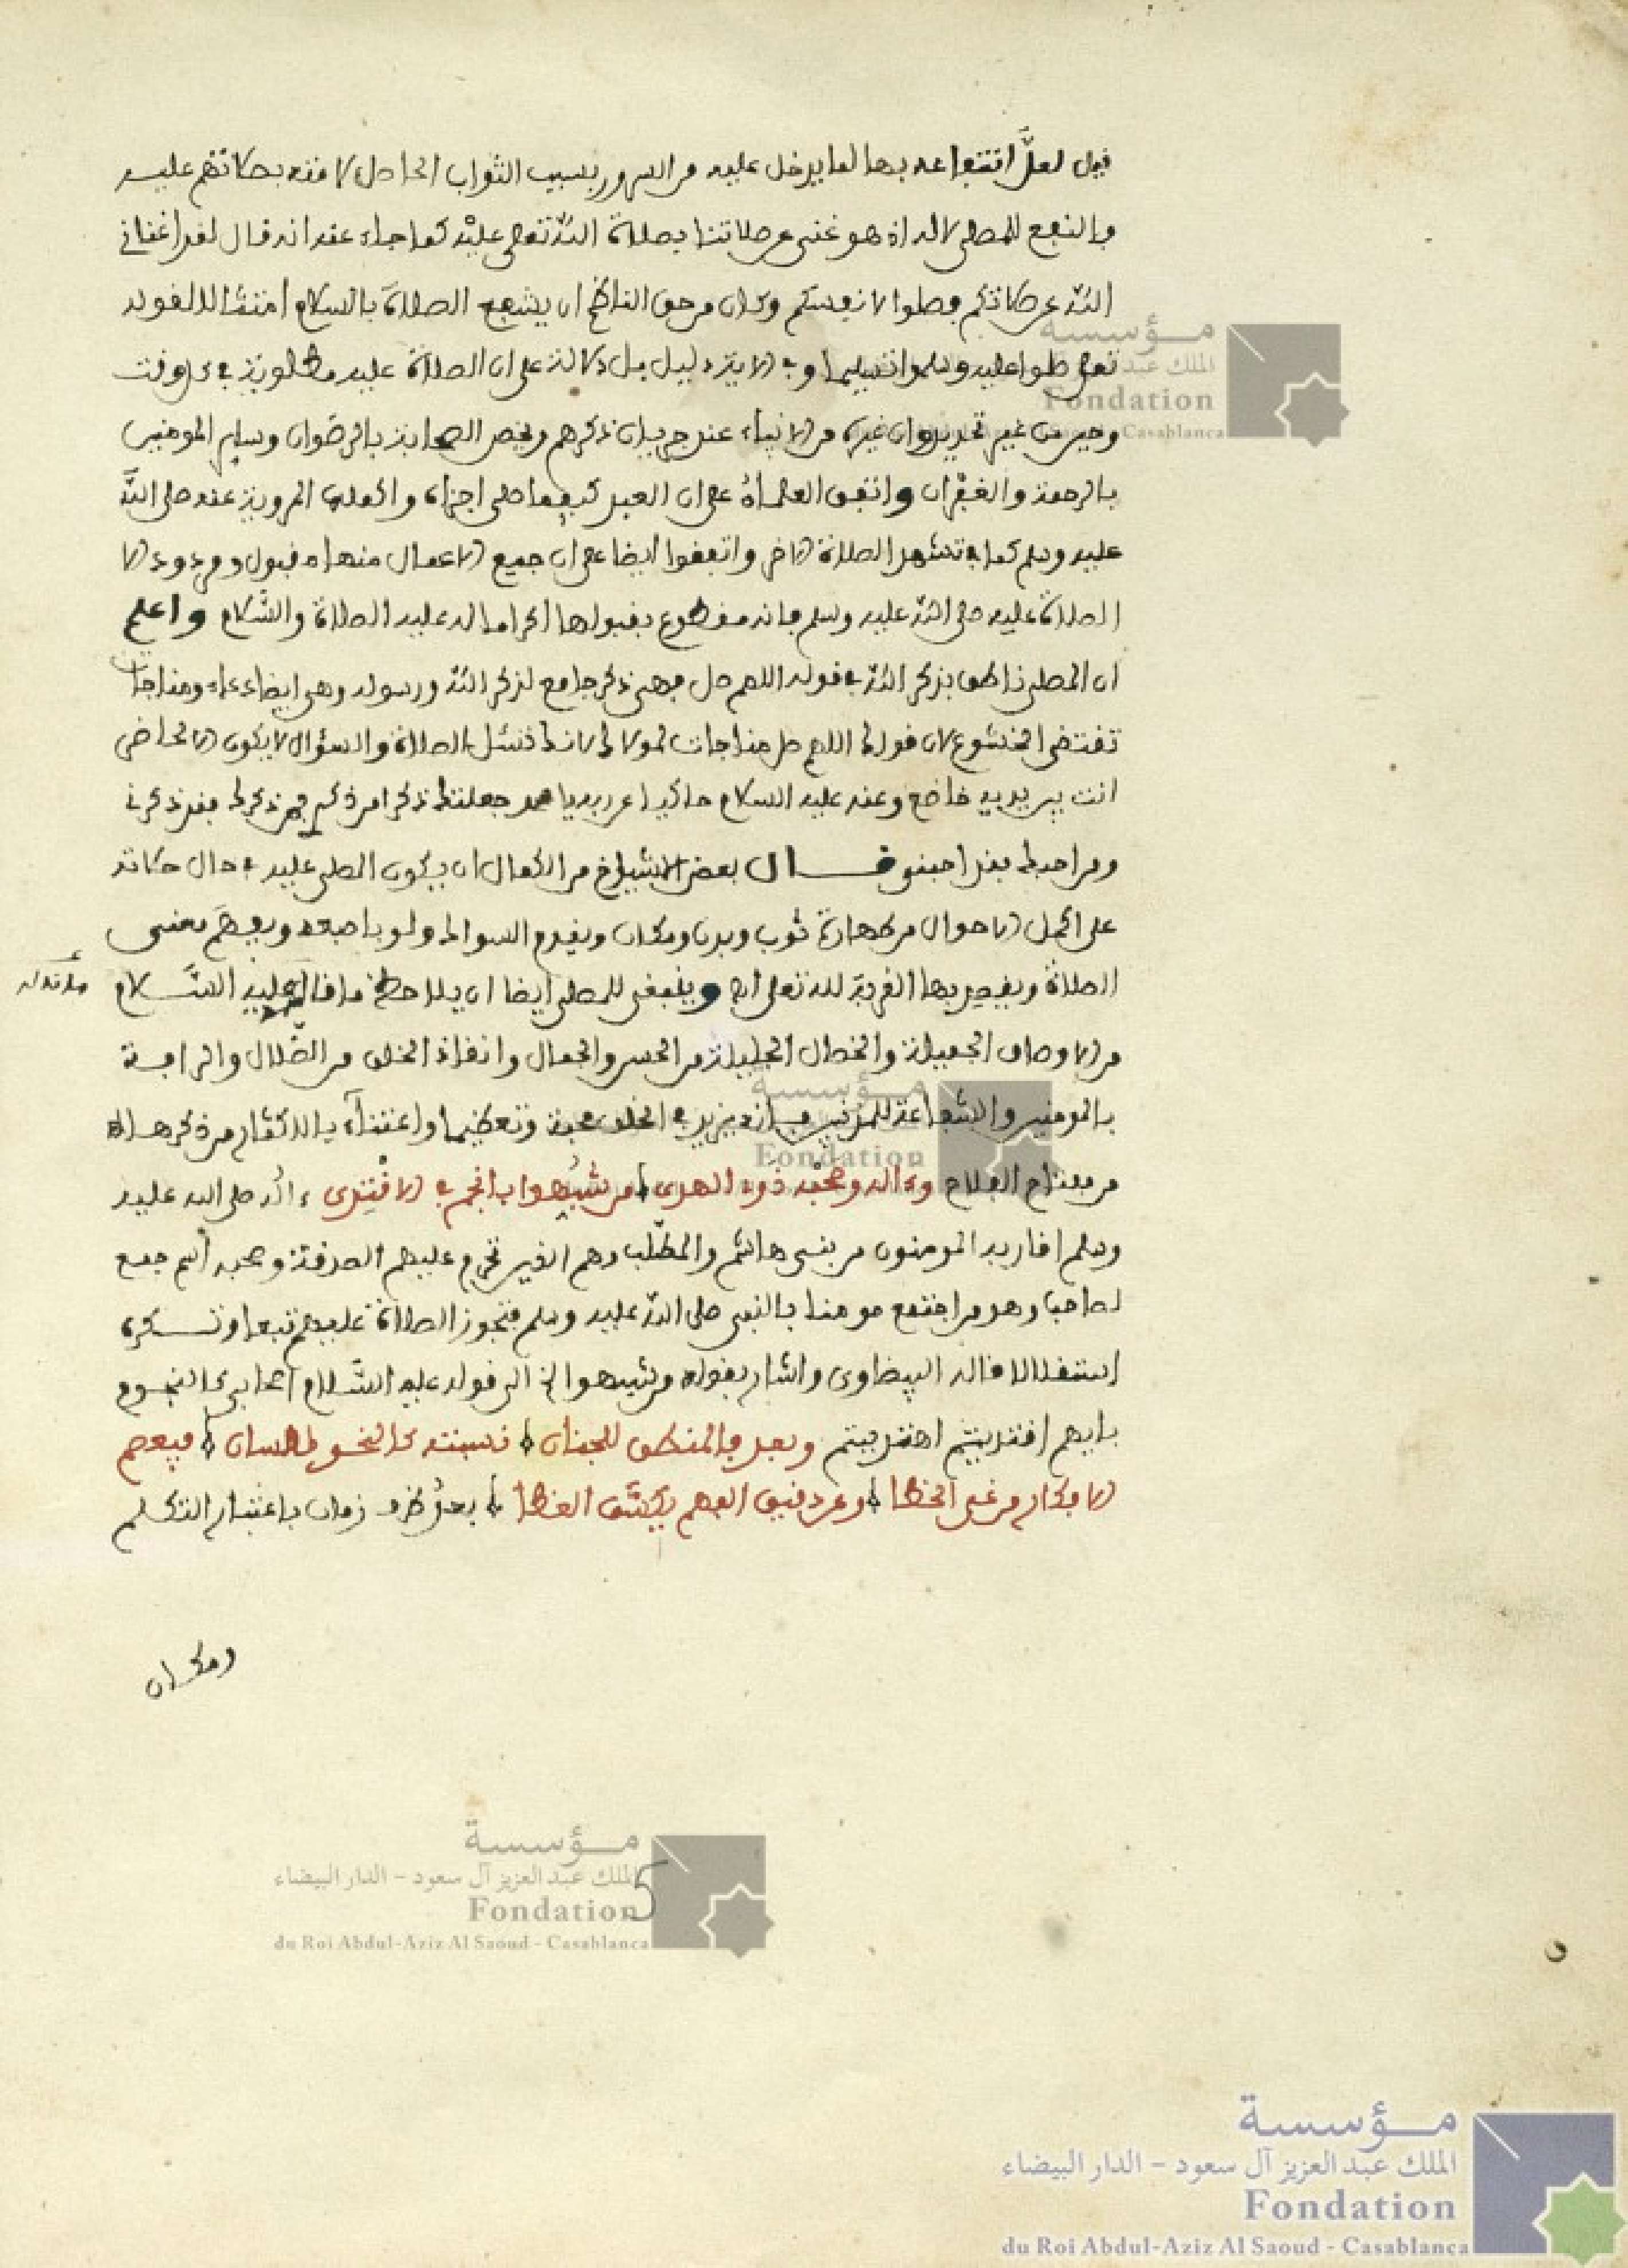 قيل لعل انتفاعه بها لما يدخل عليه من السرور بسبب الثواب الحاصل لامته بصلاتهم عليه
فالنفع للمصلي لا له اذ هو غني عن صلاتنا بصلاة الله تعلى عليه كما جاء عنه انه قال لقد اغناني
الله عن صلاتكم فصلوا لانفسكم وكان من حق الناظم ان يشفع الصلاة بالسلام امتثالا لقوله
تعلى صلوا عليه وسلموا تسليما وفي الاية دليل بل دلالة على ان الصلاة عليه مطلوبة في كل وقت
وحين من غير تحديد وان غيره من الانبياء عند جريان ذكرهم ويخص الصحابة بالرضوان وساير المومنين
بالرحمة والغفران واتفق العلماء على ان العبد كيفما صلى اجزاه واكملها المروية عنه صلى الله
عليه وسلم كما في تشهد الصلاة الاخر واتفقوا ايضا على ان جميع الاعمال منها مقبول ومردود الا
الصلاة عليه صلى الله عليه وسلم فانه مقطوع بقبولها اكراما له عليه الصلاة والسلام واعلم
ان المصلي ناطق بذكر الله في قوله اللهم صل فهي ذكر جامع لذكر الله ورسوله وهي ايضا دعاء ومناجات
تقتضي الخشوع لان قولك اللهم صل مناجات لمولاك لانك تسئل الصلاة والسؤال لا يكون الا لحاضر
انت بين يديه خاضع وعنه عليه السلام حاكيا عن ربه يا محمد جعلتك ذكرا من ذكري فمن ذكرك فقد ذكرني
ومن احبك فقد احبني وقال بعض الاشياخ من الكمال ان يكون المصلي عليه في حال صلاته
على اكمل الاحوال من طهارة ثوب وبدن ومكان ويقدم السواك ولو باصبعه ويفهم معنى
الصلاة ويقصد بها القربة لله تعلى وينبغي للمصلي ايضا ان يلاحظ ما قاله عليه السلام
من الاوصاف الجميلة والخصال الجليلة من الحسن والجمال وانقاذ الخلق من الضلال والرافة
بالمومنين والشفاعة للمذنبين فانه يزيد في الخلق محبة وتعظيما واعتناء بالاكثار من ذكره الذي
من مفتاح الفلاح وءاله وصحبه ذوي الهدى من شبهوا بانجم في الاقتدى ءاله صلى الله عليه
وسلم اقاربه المومنون من بني هاشم والمطلب وهم الذين تحرم عليهم الصدقة وصحبه اسم جمع
لصاحب وهو من اجتمع مومنا بالنبي صلى الله عليه وسلم فتجوز الصلاة عليهم تبعا وتكره
استقلالا قاله البيضاوي واشار بقوله من شبهوا الخ الى قوله عليه السلام اصحابي كالنجوم
بايهم اقتديتم اهتديتم وبعد فالمنطق للجنان نسبته كالنحو للسان فيعصم
الافكار من غي الخطا وعن دقيق الفهم يكشف الغطا بعد ظرف زمان باعتبار التكلم
ومكان
5
مؤسسة
الملك عبد العزيز آل سعود - الدار البيضاء
Fondation
du Roi Abdul-Aziz Al Saoud - Casablanca